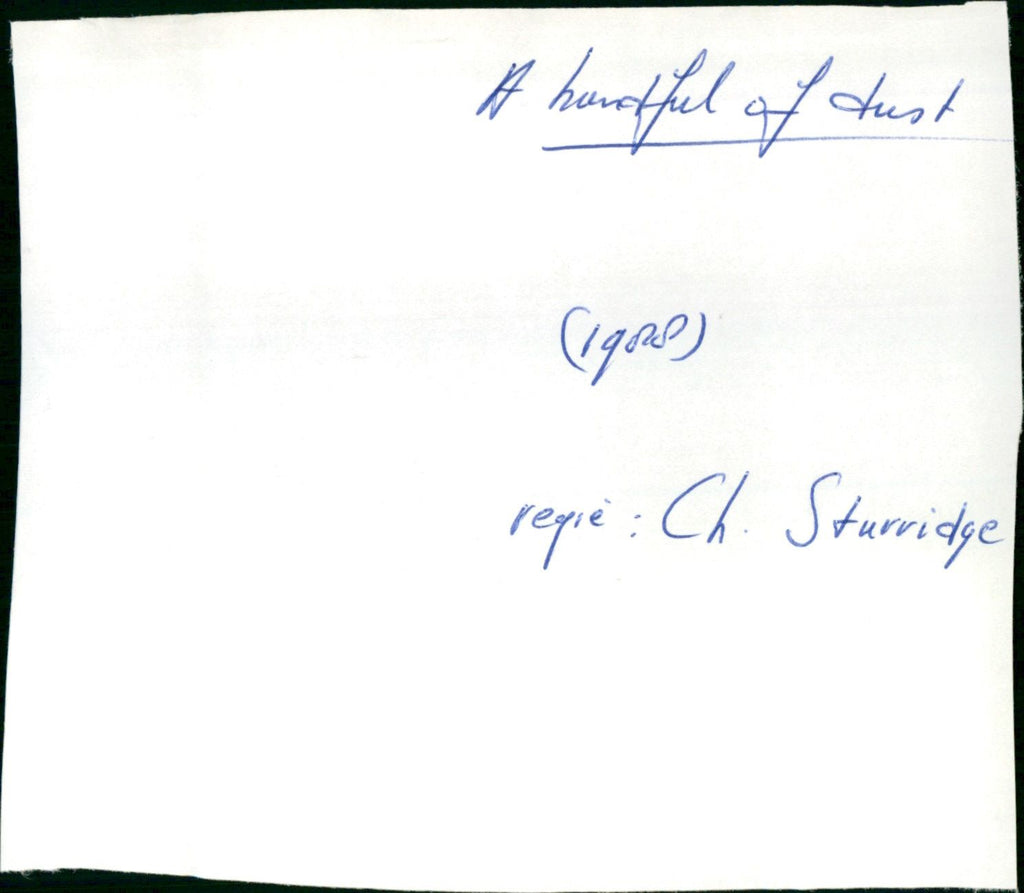 A handful of dust
(1988)
regie : Ch. Sturridge